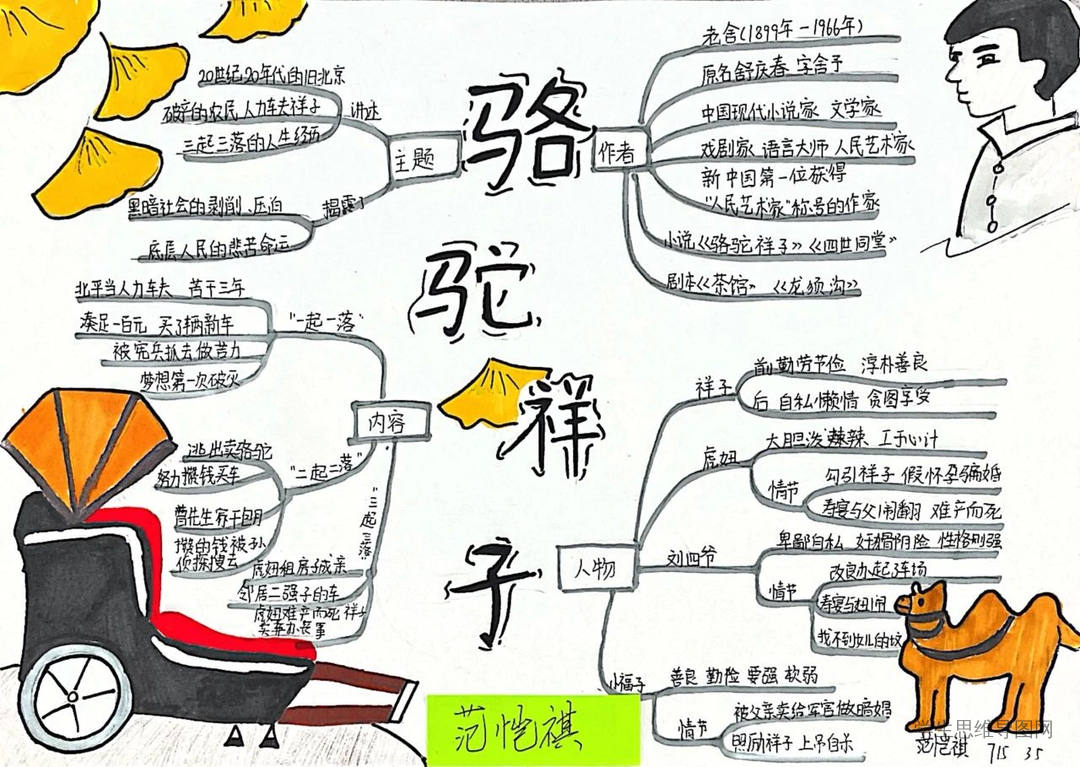 骆
驼
祥
子
主题
讲述
20世纪20年代的旧北京
破产的农民 人力车夫祥子
三起三落的人生经历
揭露了
黑暗社会的剥削、压迫
底层人民的悲苦命运
作者
老舍(1899年-1966年)
原名舒庆春 字舍予
中国现代小说家 文学家
戏剧家 语言大师 人民艺术家
新中国第一位获得
"人民艺术家"称号的作家
小说《骆驼祥子》《四世同堂》
剧本《茶馆》 《龙须沟》
内容
"一起一落"
北平当人力车夫 苦干三年
凑足一百元 买了辆新车
被宪兵抓去做苦力
梦想第一次破灭
"二起二落"
逃出卖骆驼
努力攒钱买车
曹先生家干包月
攒的钱被孙
侦探搜去
"三起三落"
虎妞租房子成亲
邻居二强子的车
虎妞难产而死 祥子
卖车办丧事
人物
祥子
前 勤劳节俭 淳朴善良
后 自私懒惰 贪图享受
虎妞
大胆泼辣辣 工于心计
情节
勾引祥子 假怀孕骗婚
寿宴与父闹翻 难产而死
刘四爷
卑鄙自私 奸猾阴险 性格刚强
情节
改良办起车场
寿宴与妞闹
找不到女儿的坟
小福子
善良 勤俭 要强 软弱
情节
被父亲卖给军官做暗娼
照励祥子 上吊自杀
范恺祺
范恺祺 715 35
学生思维导图网